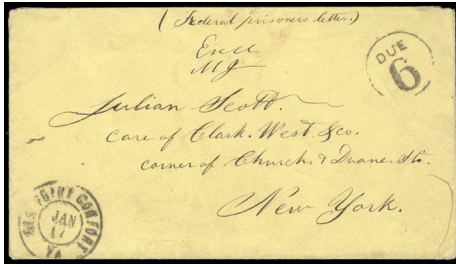 (Federal prisoners letter.)
Exd
MJ
DUE
6
Julian Scott.
care of Clark. West. & co.
corner of Church & Duane. Sts.
New York.
OLD POINT COMFORT
JAN
17
VA